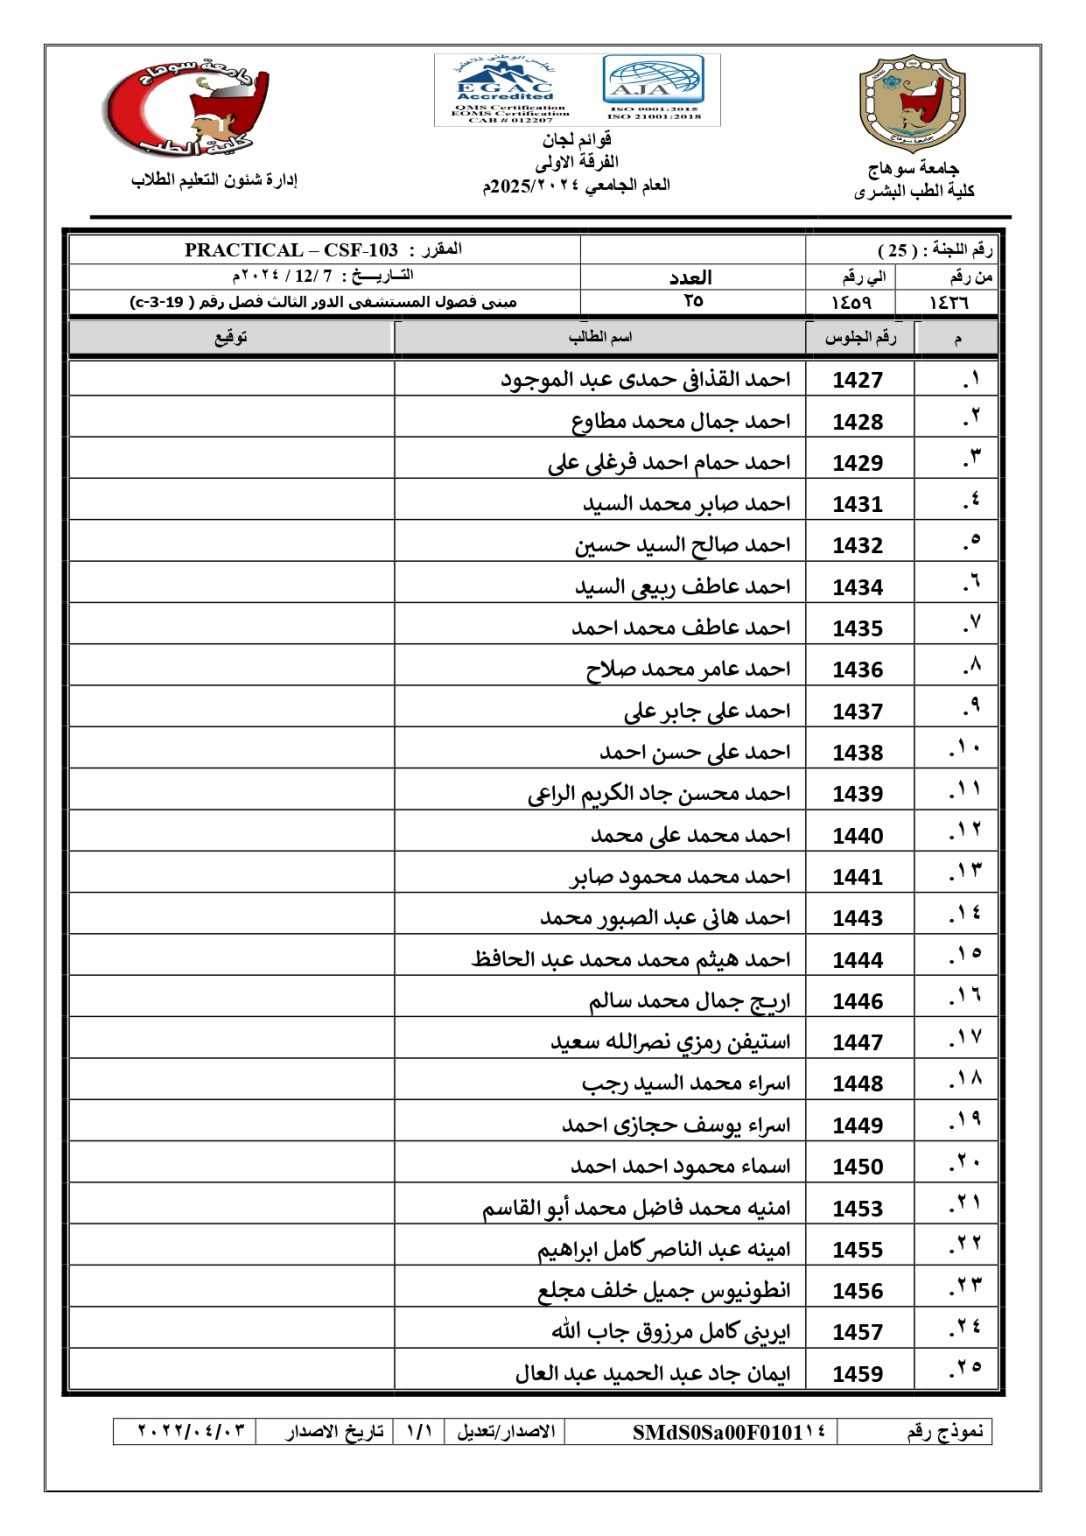 جامعة سوهاج
كلية الطب
إدارة شئون التعليم الطلاب
EGAC
Accredited
QMS Certification
EOMS Certification
CAB # 012207
AJA
ISO 9001:2015
ISO 21001:2018
قوائم لجان
الفرقة الاولى
العام الجامعي ٢٠٢٤/2025م
جامعة سوهاج
كلية الطب البشرى
رقم اللجنة : ( 25 )
المقرر : PRACTICAL – CSF-103
من رقم الي رقم العدد التاريـــخ : 7 /12 / ٢٠٢٤م
١٤٢٦ ١٤٥٩ ٢٥ مبنى فصول المستشفى الدور الثالث فصل رقم ( c-3-19)
م رقم الجلوس اسم الطالب توقيع
١. 1427 احمد القذافى حمدى عبد الموجود
٢. 1428 احمد جمال محمد مطاوع
٣. 1429 احمد حمام احمد فرغلى على
٤. 1431 احمد صابر محمد السيد
٥. 1432 احمد صالح السيد حسين
٦. 1434 احمد عاطف ربيعى السيد
٧. 1435 احمد عاطف محمد احمد
٨. 1436 احمد عامر محمد صلاح
٩. 1437 احمد على جابر على
١٠. 1438 احمد على حسن احمد
١١. 1439 احمد محسن جاد الكريم الراعى
١٢. 1440 احمد محمد على محمد
١٣. 1441 احمد محمد محمود صابر
١٤. 1443 احمد هانى عبد الصبور محمد
١٥. 1444 احمد هيثم محمد محمد عبد الحافظ
١٦. 1446 اريج جمال محمد سالم
١٧. 1447 استيفن رمزي نصرالله سعيد
١٨. 1448 اسراء محمد السيد رجب
١٩. 1449 اسراء يوسف حجازى احمد
٢٠. 1450 اسماء محمود احمد احمد
٢١. 1453 امنيه محمد فاضل محمد أبو القاسم
٢٢. 1455 امينه عبد الناصر كامل ابراهيم
٢٣. 1456 انطونيوس جميل خلف مجلع
٢٤. 1457 ايرينى كامل مرزوق جاب الله
٢٥. 1459 ايمان جاد عبد الحميد عبد العال
نموذج رقم SMdS0Sa00F0101١٤ الاصدار/تعديل ١/١ تاريخ الاصدار ٢٠٢٢/٠٤/٠٣